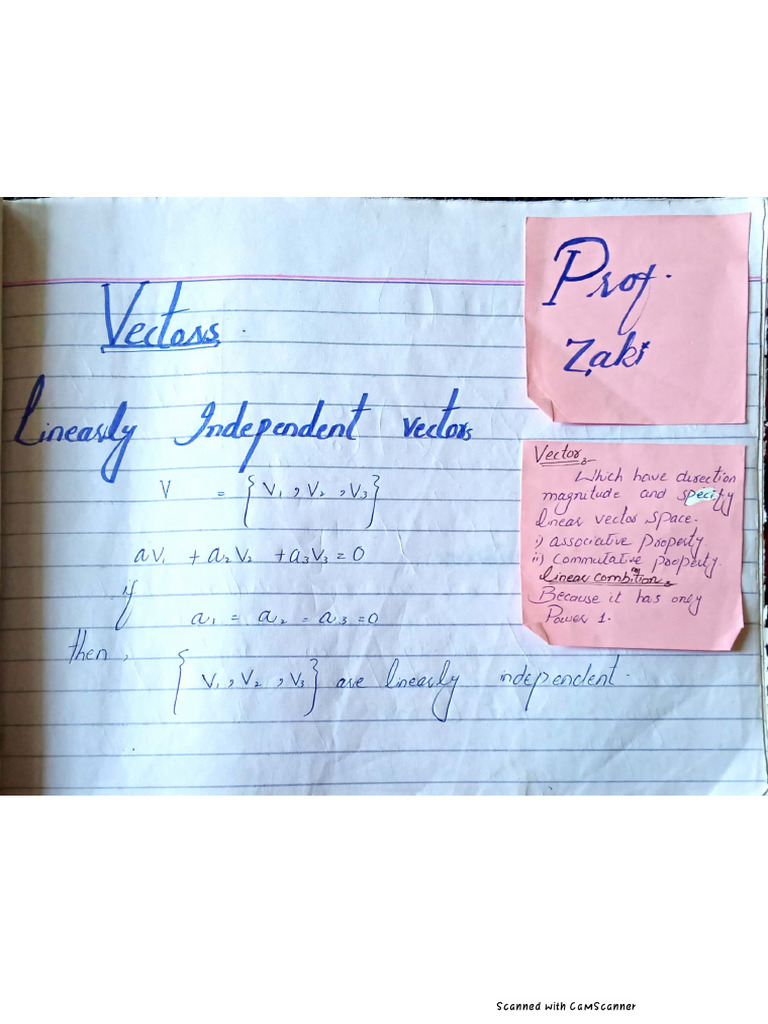 Vectors.
Linearly Independent vectors
V = {V₁, V₂, V₃}
aV₁ + a₂V₂ + a₃V₃ = 0
if
a₁ = a₂ = a₃ = 0
then,
{V₁, V₂, V₃} are linearly independent.
Prof.
Zaki
Vector:
Which have direction
magnitude and specify
linear vector space.
i) associative property.
ii) commutative property.
linear combition:
Because it has only
Power 1.
Scanned with CamScanner